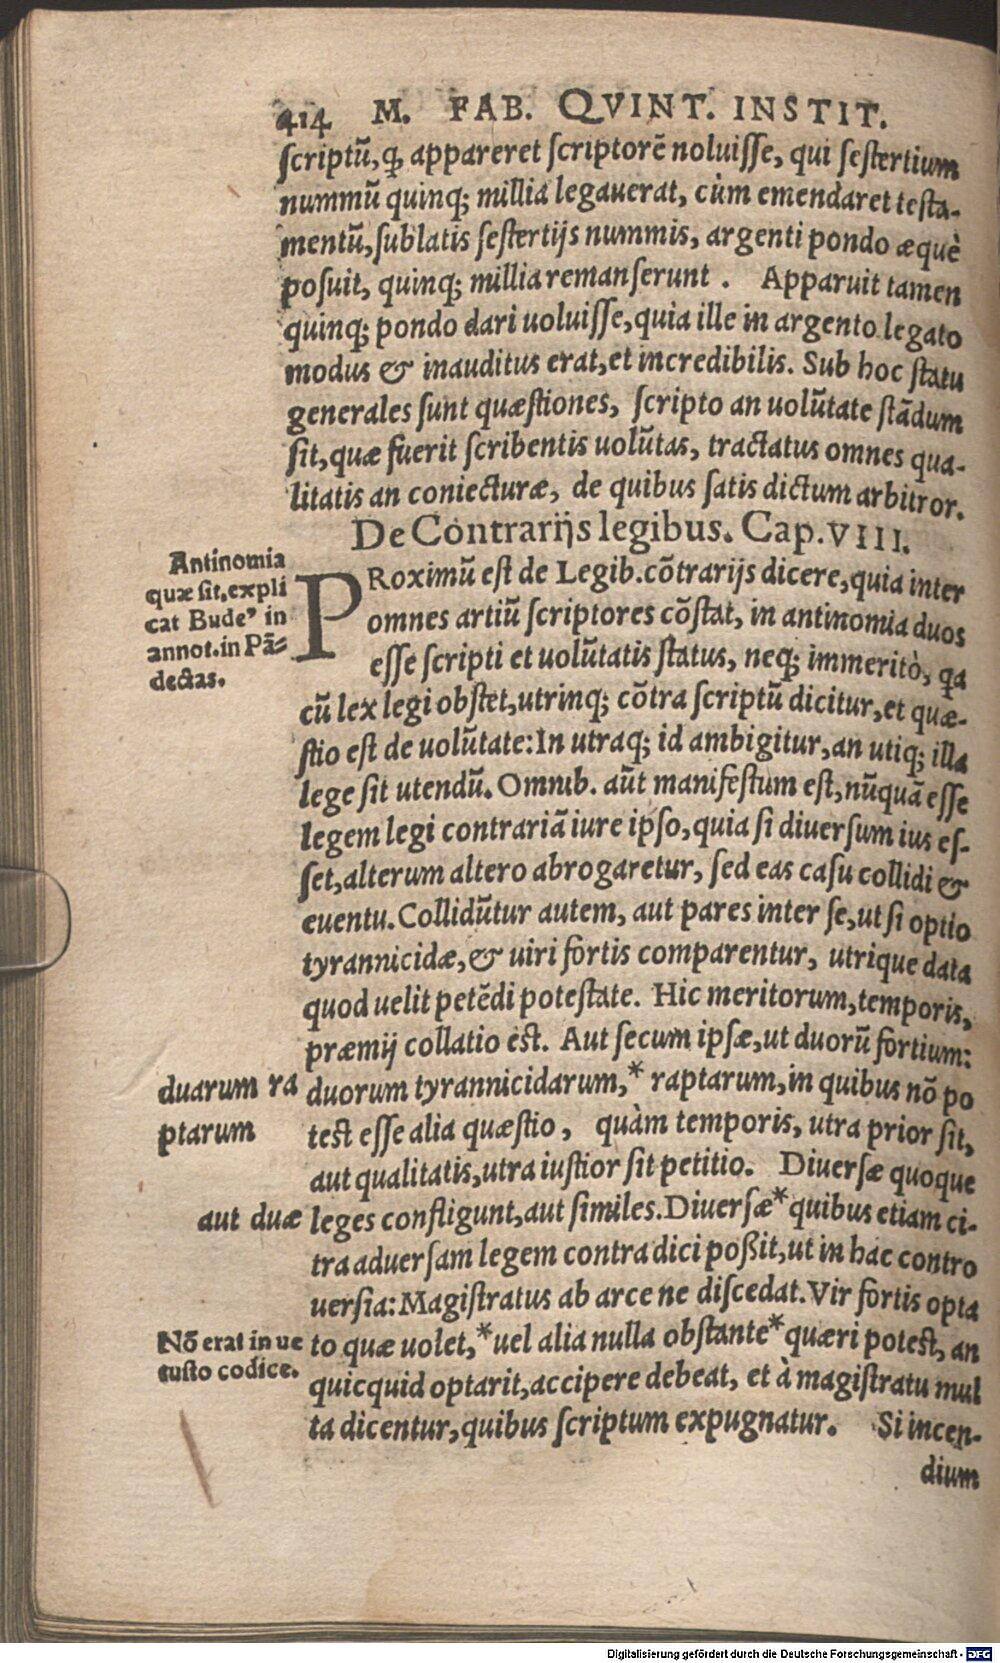 414 M. FAB. QVINT. INSTIT.
scriptū, ꝙ appareret scriptorē noluisse, qui sestertium
nummū quinq; millia legauerat, cùm emendaret testa-
mentū, sublatis sestertijs nummis, argenti pondo æquè
posuit, quinq; millia remanserunt . Apparuit tamen
quinq; pondo dari uoluisse, quia ille in argento legato
modus & inauditus erat, et incredibilis. Sub hoc statu
generales sunt quæstiones, scripto an uolūtate stādum
sit, quæ fuerit scribentis uolūtas, tractatus omnes qua-
litatis an coniecturæ, de quibus satis dictum arbitror.
De Contrarijs legibus. Cap. VIII.
Antinomia
quæ sit, expli
cat Bude’ in
annot. in Pā-
dectas.
PRoximū est de Legib. cōtrarijs dicere, quia inter
omnes artiū scriptores cōstat, in antinomia duos
esse scripti et uolūtatis status, neq; immeritò, qa
cū lex legi obstet, utrinq; cōtra scriptū dicitur, et quæ-
stio est de uolūtate: In utraq; id ambigitur, an utiq; illa
lege sit utendū. Omnib. aūt manifestum est, nūquā esse
legem legi contrariā iure ipso, quia si diuersum ius es-
set, alterum altero abrogaretur, sed eas casu collidi &
euentu. Collidūtur autem, aut pares inter se, ut si optio
tyrannicidæ, & uiri fortis comparentur, utrique data
quod uelit petēdi potestate. Hic meritorum, temporis,
præmij collatio est. Aut secum ipsæ, ut duorū fortium:
duarum ra
ptarum
duorum tyrannicidarum, * raptarum, in quibus nō po
test esse alia quæstio , quàm temporis, utra prior sit,
aut qualitatis, utra iustior sit petitio. Diuersæ quoque
aut duæ
leges confligunt, aut similes. Diuersæ * quibus etiam ci-
tra aduersam legem contradici poßit, ut in hac contro
uersia: Magistratus ab arce ne discedat. Vir fortis opta
Nō erat in ue
tusto codice.
to quæ uolet, * uel alia nulla obstante * quæri potest, an
quicquid optarit, accipere debeat, et à magistratu mul
ta dicentur, quibus scriptum expugnatur. Si incen-
dium
Digitalisierung gefördert durch die Deutsche Forschungsgemeinschaft - DFG